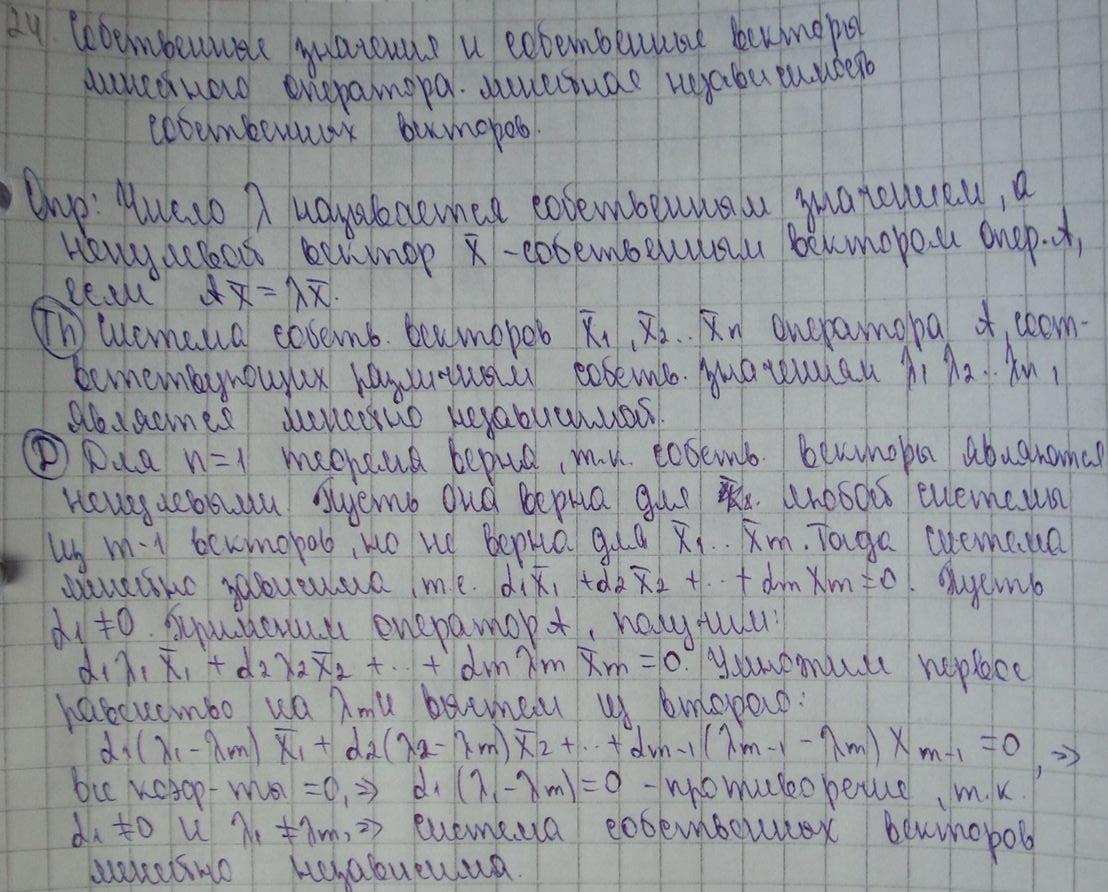 24. Собственные значения и собственные векторы
линейного оператора. Линейная независимость
собственных векторов.
Опр: Число λ называется собственным значением, а
ненулевой вектор x̄ - собственным вектором опер. A,
если Ax̄ = λx̄.
Th Система собств. векторов x̄₁, x̄₂.. x̄n оператора A, соот-
ветствующих различным собств. значениям λ₁ λ₂.. λn,
является линейно независимой.
D Для n=1 теорема верна, т.к. собств. векторы являются
ненулевыми. Пусть она верна для любой системы
из m-1 векторов, но не верна для x̄₁.. x̄m. Тогда система
линейно зависима, т.е. α₁x̄₁ + α₂x̄₂ + .. + αmxm = 0. Пусть
α₁ ≠ 0. Применим оператор A, получим:
α₁λ₁x̄₁ + α₂λ₂x̄₂ + .. + αmλmx̄m = 0. Умножим первое
равенство на λm и вычтем из второго:
α₁(λ₁ - λm)x̄₁ + α₂(λ₂ - λm)x̄₂ + .. + αm-1(λm-1 - λm)xm-1 = 0, =>
все коэф-ты = 0, => α₁(λ₁ - λm) = 0 - противоречие, т.к.
α₁ ≠ 0 и λ₁ ≠ λm, => система собственных векторов
линейно независима.